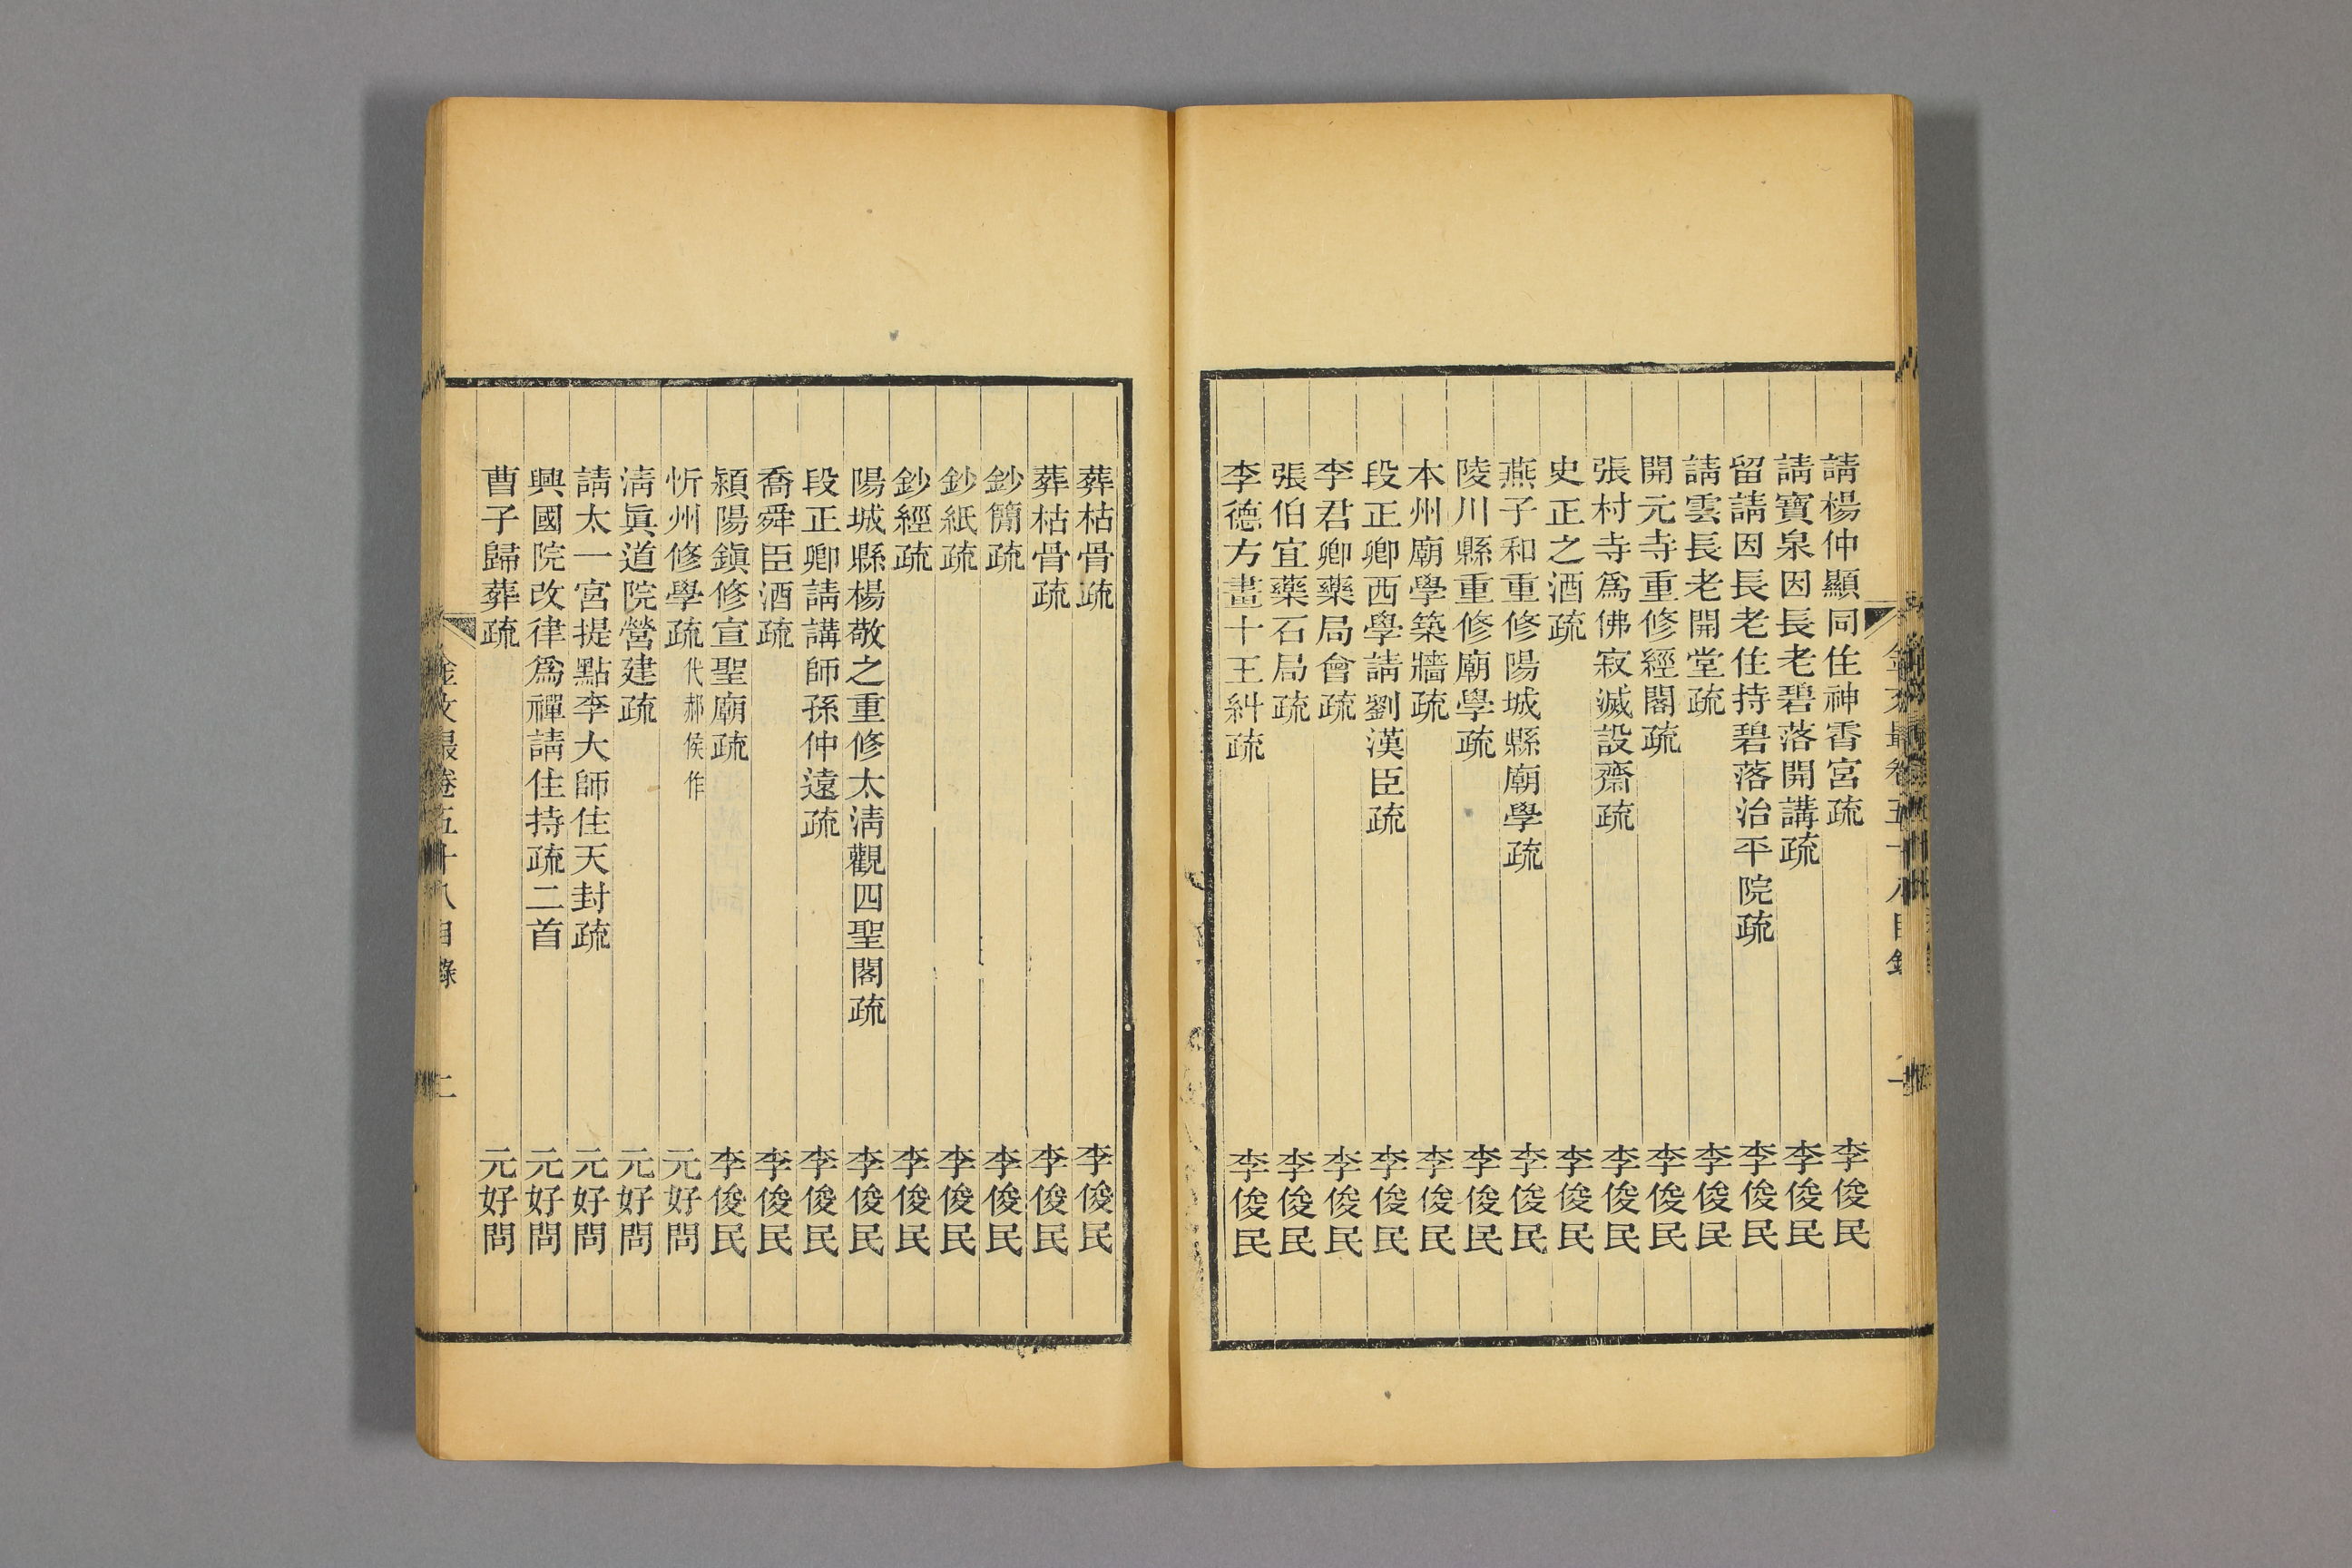 請楊仲顯同住神霄宮疏 李俊民
請寶泉因長老碧落開講疏 李俊民
留請因長老住持碧落治平院疏 李俊民
請雲長老開堂疏 李俊民
開元寺重修經閣疏 李俊民
張村寺爲佛寂滅設齋疏 李俊民
史正之酒疏 李俊民
燕子和重修陽城縣廟學疏 李俊民
陵川縣重修廟學疏 李俊民
本州廟學築牆疏 李俊民
段正卿西學請劉漢臣疏 李俊民
李君卿藥局會疏 李俊民
張伯宜藥石局疏 李俊民
李德方畫十王糾疏 李俊民
葬枯骨疏 李俊民
葬枯骨疏 李俊民
鈔簡疏 李俊民
鈔紙疏 李俊民
鈔經疏 李俊民
陽城縣楊敬之重修太淸觀四聖閣疏 李俊民
段正卿請講師孫仲遠疏 李俊民
喬舜臣酒疏 李俊民
潁陽鎭修宣聖廟疏 李俊民
忻州修學疏代郝侯作 元好問
淸眞道院營建疏 元好問
請太一宮提點李大師住天封疏 元好問
興國院改律爲禪請住持疏二首 元好問
曹子歸葬疏 元好問
金文最卷五十八目錄 二